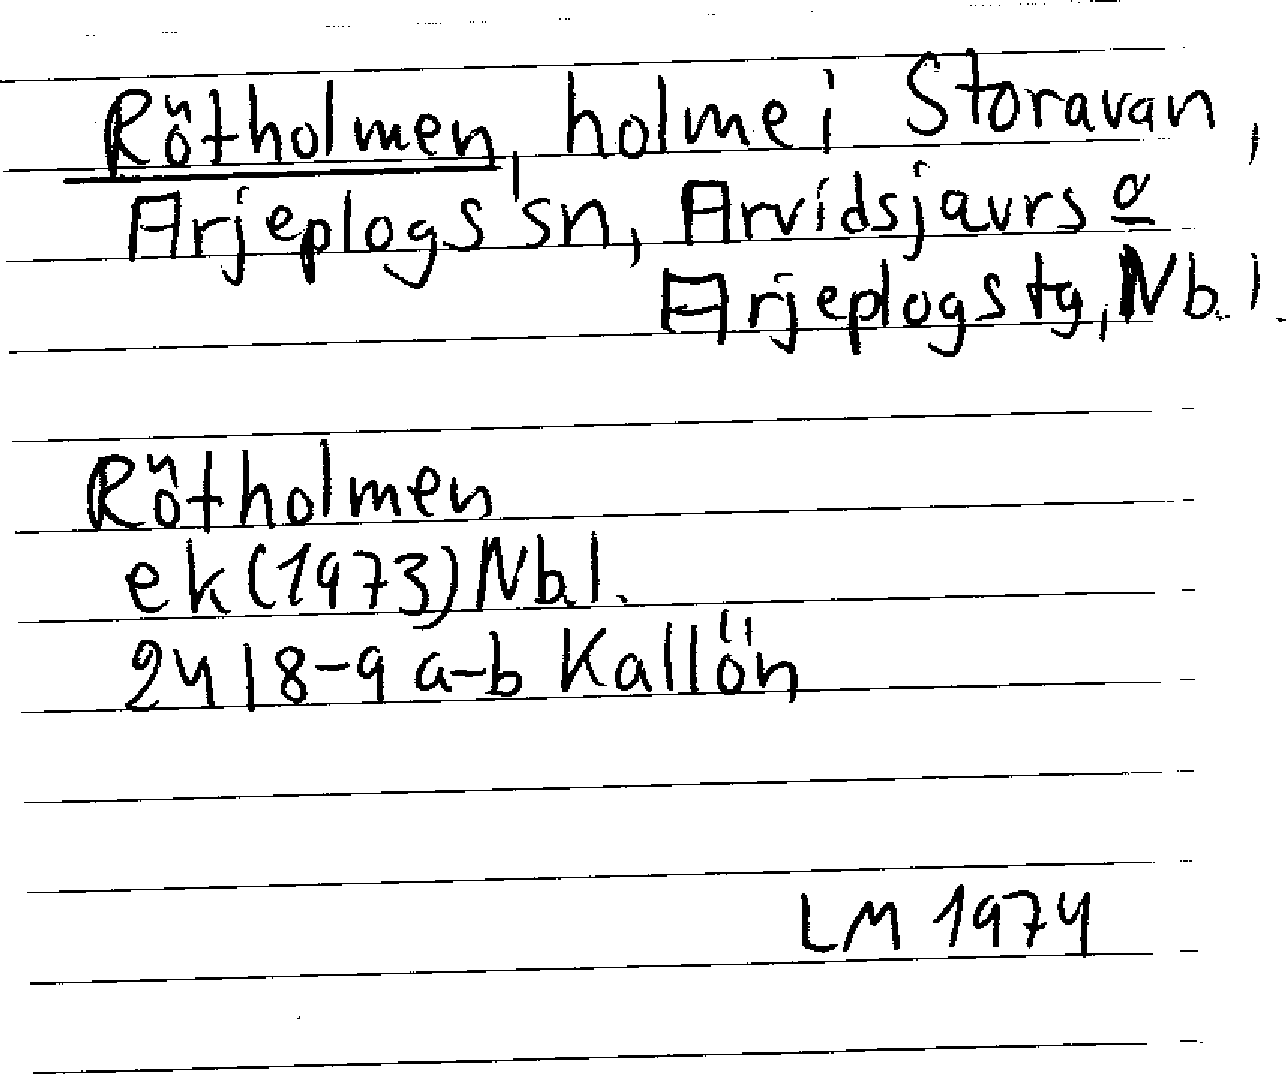 Rötholmen, holme i Storavan,
Arjeplogs sn, Arvidsjavrs o
Arjeplogs tg, Nb. l.
Rötholmen
ek (1973) Nb. l.
24 I 8-9 a-b Kallön
LM 1974